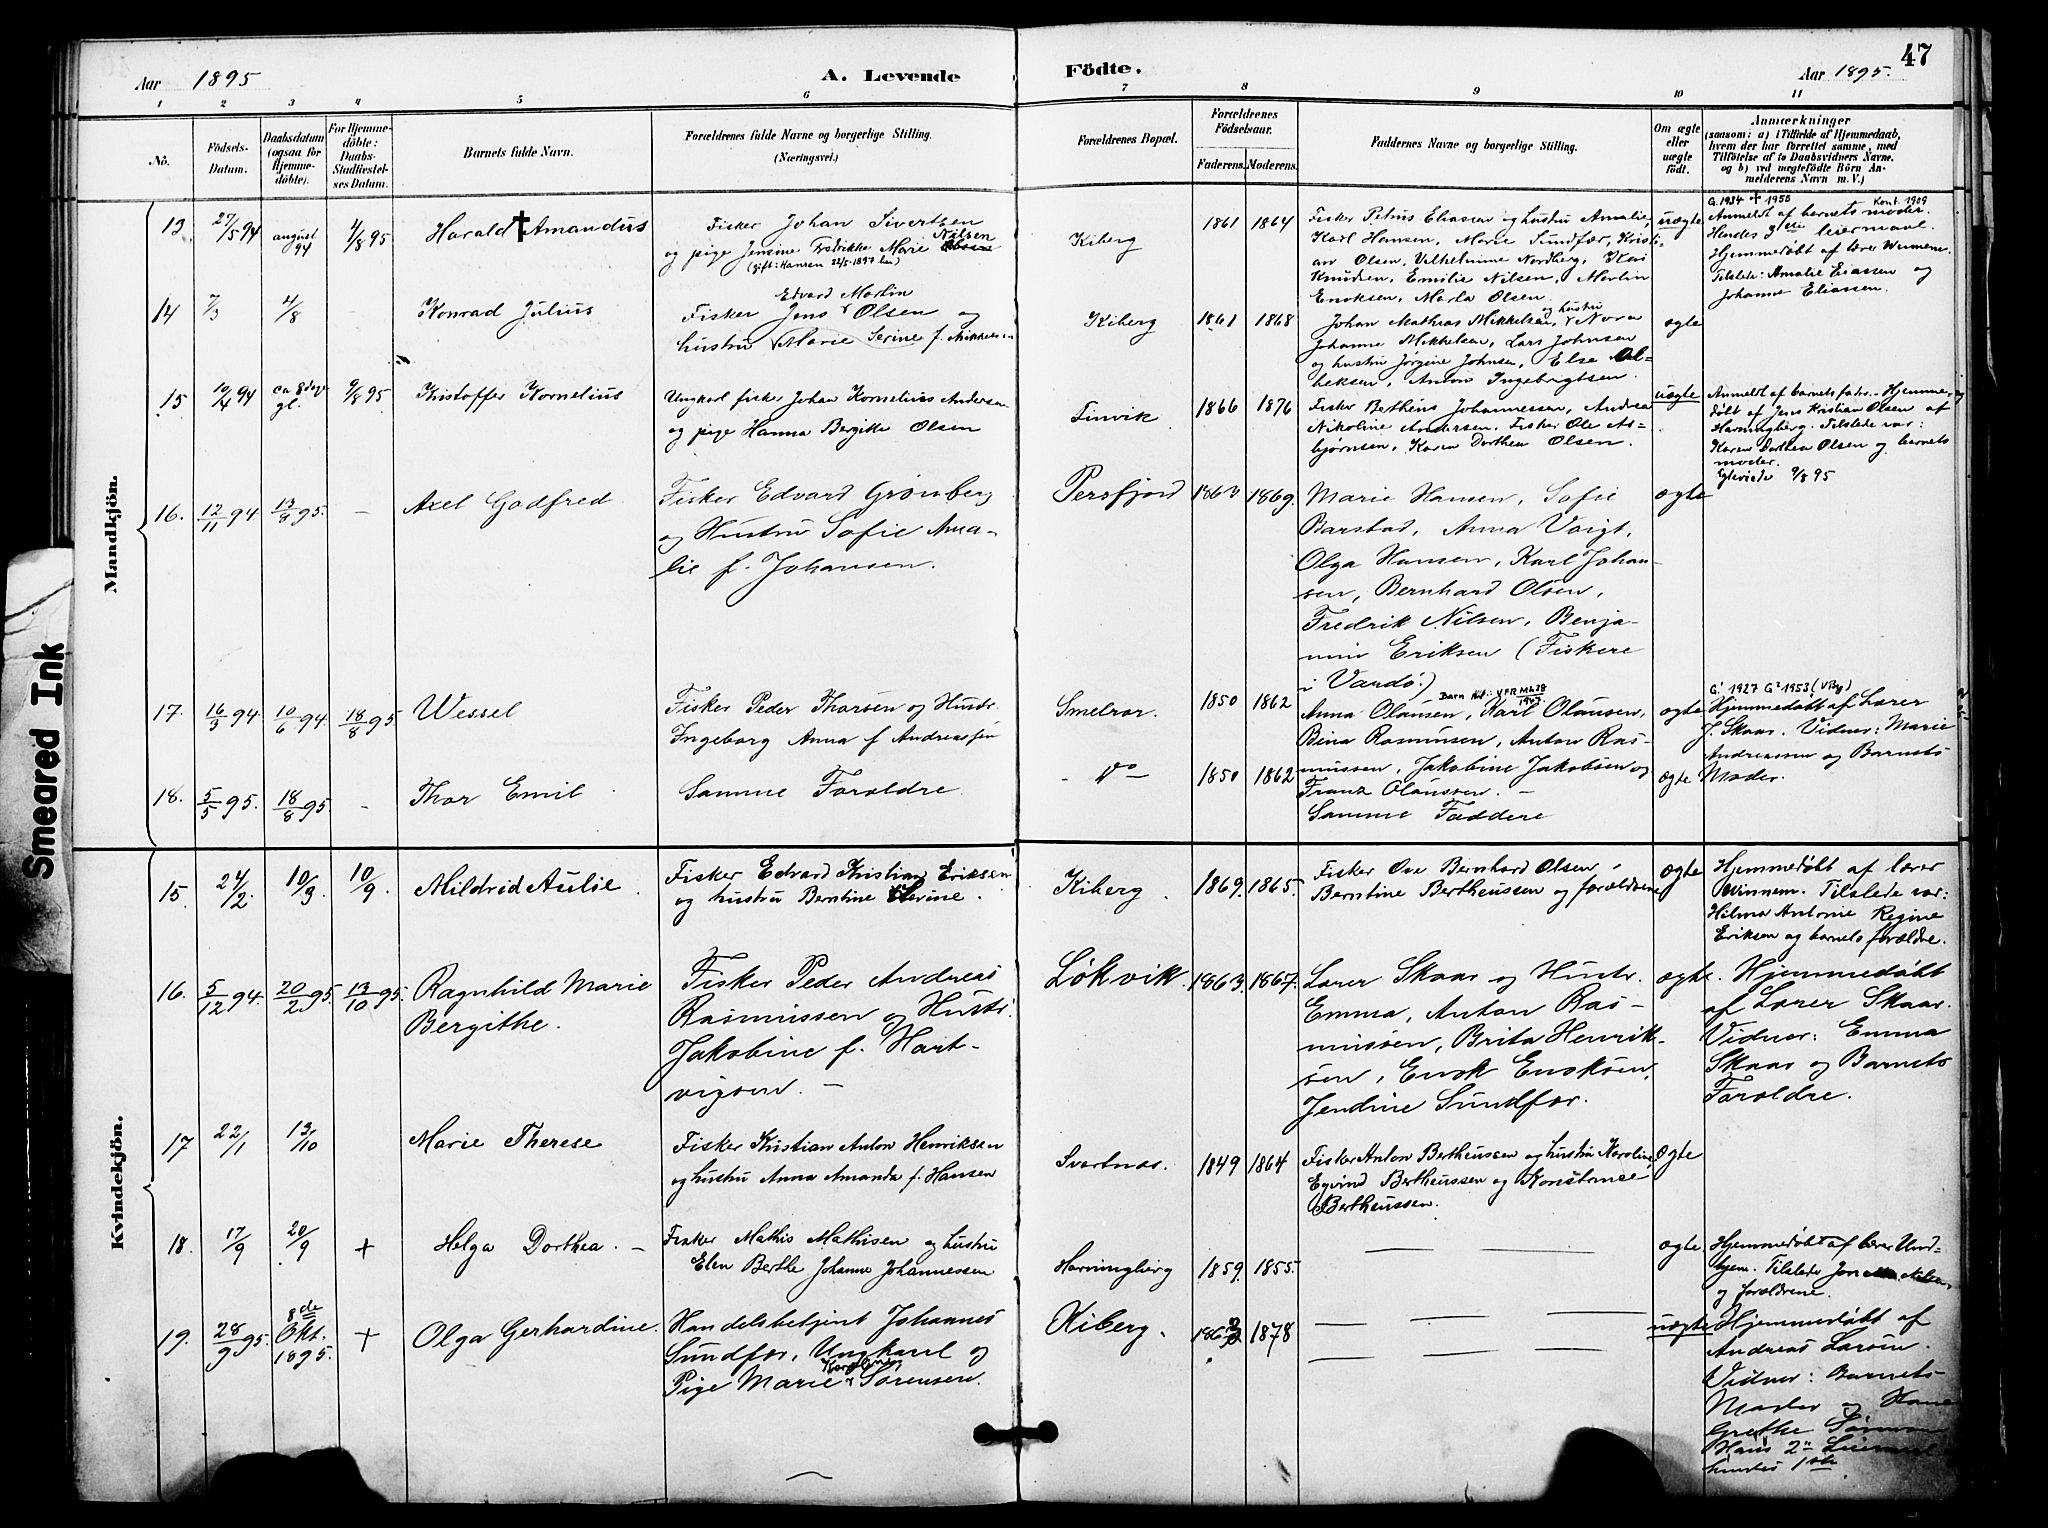 47
Aar 1895
A. Levende
Födte.
Aar 1895.
1 2 3 4 5 6 7 8 9 10 11
No.
Födsels-Datum.
Daabsdatum (ogsaa for Hjemme-döbte).
For Hjemme-döbte: Daabs-Stadfæstel-ses Datum.
Barnets fulde Navn.
Forældrenes fulde Navne og borgerlige Stilling.
(Næringsvei.)
Forældrenes Bopæl.
Forældrenes Födselsaar.
Faderens. Moderens.
Faddernes Navne og borgerlige Stilling.
Om ægte eller uægte födt.
Anmærkninger
(saasom: a) i Tilfælde af Hjemmedaab,
hvem der har forrettet samme, med
Tilföielse af to Daabsvidners Navne,
og b) ved uægtefödte Börn An-
melderens Navn m. V.)
Mandkjön.
13 27/5 94 august 94 4/8 95 Harald † Amandus
Fisker Johan Sivertsen
og pige Jensine Fredrikke Marie Nilsen
(gift: Hansen 22/5 1897 her)
Kiberg 1861 1864
Fisker Petrus Eliassen og hustru Amalie,
Karl Hansen, Marie Sundfær, Kristi-
an Olsen, Vilhelmine Nordberg, Kari
Knudsen, Emilie Nilsen, Martin
Enoksen, Marta Olsen.
uægte
G. 1934 † 1955 Konf. 1909
Anmeldt af barnets moder.
Hendes 3die leiermaal.
Hjemmedøbt af lærer
Tilstede: Amalie Eliassen og
Johanne Eliassen.
14 7/3 4/8 Konrad Julius
Edvard Martin
Fisker Jens Olsen og
hustru Marie Serine f. Mikkelsen
Kiberg 1861 1868
Johan Mathias Mikkelsen, og hustru Nora
Johanne Mikkelsen, Lars Johnsen
og hustru Jørgine Johnsen, Else
Anton Ingebrigtsen.
ægte
15 10/4 94 ca 8 dage gl. 9/8 95 Kristoffer Kornelius
Ungkarl fisker Johan Kornelius Andersen
og pige Hanna Bergitte Olsen
Finvik 1866 1876
Fisker Bertheus Johannessen, Andrea
Nikoline Andersen, Fisker Ole As-
bjørnsen, Karen Dorthea Olsen.
uægte
Anmeldt af barnets fader. Hjemme-
døbt af Jens Kristian Olsen af
Havningberg. Tilstede var:
Karen Dorthea Olsen og barnets
moder.
9/8 95
16. 12/11 94 13/8 95. – Axel Godfred
Fisker Edvard Grønberg
og Hustru Sofie Ama-
lie f. Johansen.
Persfjord 1863 1869.
Marie Hansen, Sofie
Barstad, Anna Voigt,
Olga Hansen, Karl Johan-
sen, Bernhard Olsen,
Fredrik Nilsen, Benja-
min Eriksen (Fiskere
i Vardø.)
ægte
17. 16/3 94. 10/6 94. 18/8 95 Wessel
Fisker Peder Thorsen og Hustr.
Ingeborg Anna f. Andreassen
Smelror. 1850 1862
Anna Olausen, Karl Olausen,
Bina Rasmusen, Anton Ras-
mussen, Jakobine Jakobsen og
Franz Olaussen. –
ægte
G.1 1927 G.2 1953
Hjemmedøbt af Lærer
J. Skaar. Vidner: Marie
Andreassen og Barnets
Moder.
18. 5/5 95. 18/8 95. – Thor Emil
Samme Forældre.
– do – 1850 1862
Samme Faddere
ægte
Kvindekjön.
15. 24/2. 10/3 10/9 Mildrid Aulie
Fisker Edvard Kristian Eriksen
og hustru Berntine Severine.
Kiberg. 1869. 1865.
Fisker Ove Bernhard Olsen,
Berntine Bertheussen og forældrene
ægte
Hjemmedøbt af lærer
Winnem. Tilstede var:
Hilma Antonie Regine
Eriksen og barnets forældre.
16. 5/12 94. 20/2 95. 13/10 95. Ragnhild Marie
Bergithe.
Fisker Peder Andreas
Rasmussen og Hustr.
Jakobine f. Hart-
vigsen. –
Løkvik. 1863. 1867.
Lærer Skaar og Hustr.
Emma, Anton Ras-
mussen, Brita Henrik-
sen, Enok Enoksen,
Jendine Sundfær.
ægte.
Hjemmedøbt
af Lærer Skaar.
Vidner: Emma
Skaar og Barnets
Forældre.
17 22/1 13/10 Marie Therese
Fisker Kristian Anton Henriksen
og hustru Anna Amanda f. Hansen
Svartnæs. 1849 1864
Fisker Anton Bertheussen og hustru Karoline,
Eyvind Bertheussen og Konstanse
Bertheussen.
Ægte
18. 17/9 20/9 + Helga Dorthea. –
Fisker Mathis Mathisen og hustru
Elen Berthe Johanne Johannessen
Havningberg 1859. 1855.
ægte.
Hjemmedøbt af lærer Und-
hjem. Tilstede
og forældrene.
19. 28/9 95. 8de Okt. 1895. + Olga Gerhardine.
Handelsbetjent Johannes
Sundfær, Ungkarl og
Pige Marie Sørensen.
Kiberg. 1878
uægte
Hjemmedøbt af
Andreas Larsen.
Vidner: Barnets
Moder og
Grethe
Hans 2det
hendes 1ste
Smeared Ink